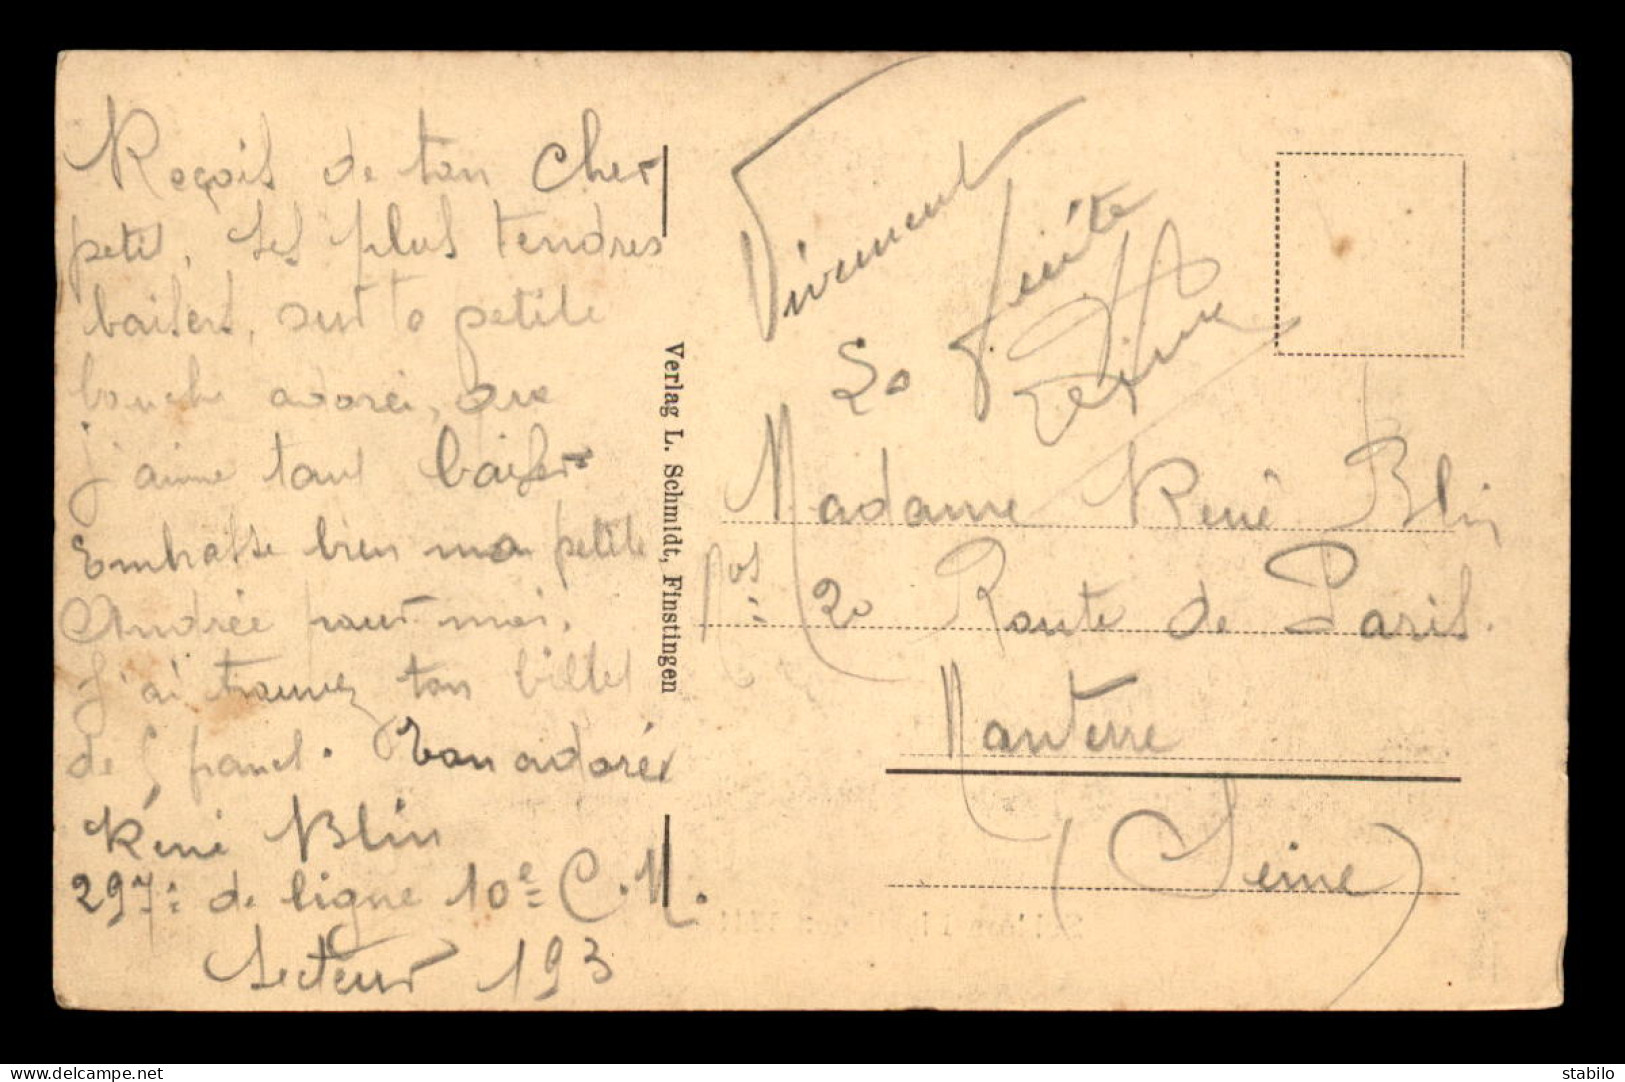 Reçois de ton Cher
petit, les plus tendres
baisers, sur ta petite
bouche adoréé, que
j'aime tant baiser
Embrasse bien ma petite
Andrée pour moi,
J'ai trouvez ton billet
de 5 francs. Ton adoréé
René Blin
297e: de ligne 10e C.M.
Secteur 193
Verlag L. Schmidt, Finstingen
Vivement
La Fuite
Madame René Blin
No: 20 Route de Paris.
Nanterre
(Seine)
delcampe.net
stabilo